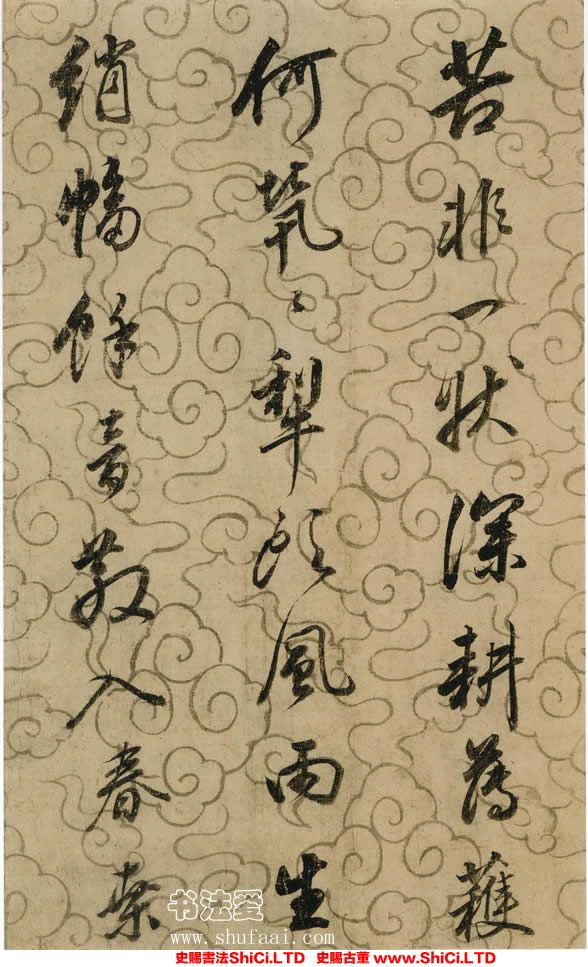 苦非一狀深耕薄穫
何茕〻犁頭風雨生
綃幅餘音散入春桑
书法爱
www.shufaai.com
史賜書法ShiCi.LTD 史賜古董 www.ShiCi.LTD